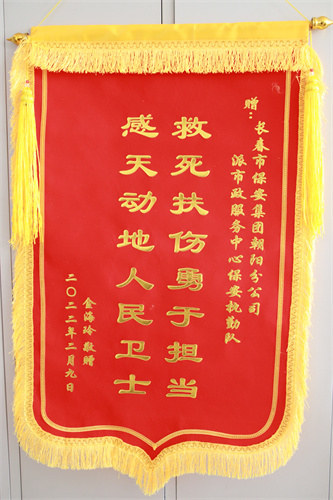 赠：长春市保安集团朝阳分公司
派市政服务中心保安执勤队
救死扶伤勇于担当
感天动地人民卫士
金海玲敬赠
二〇二二年二月九日